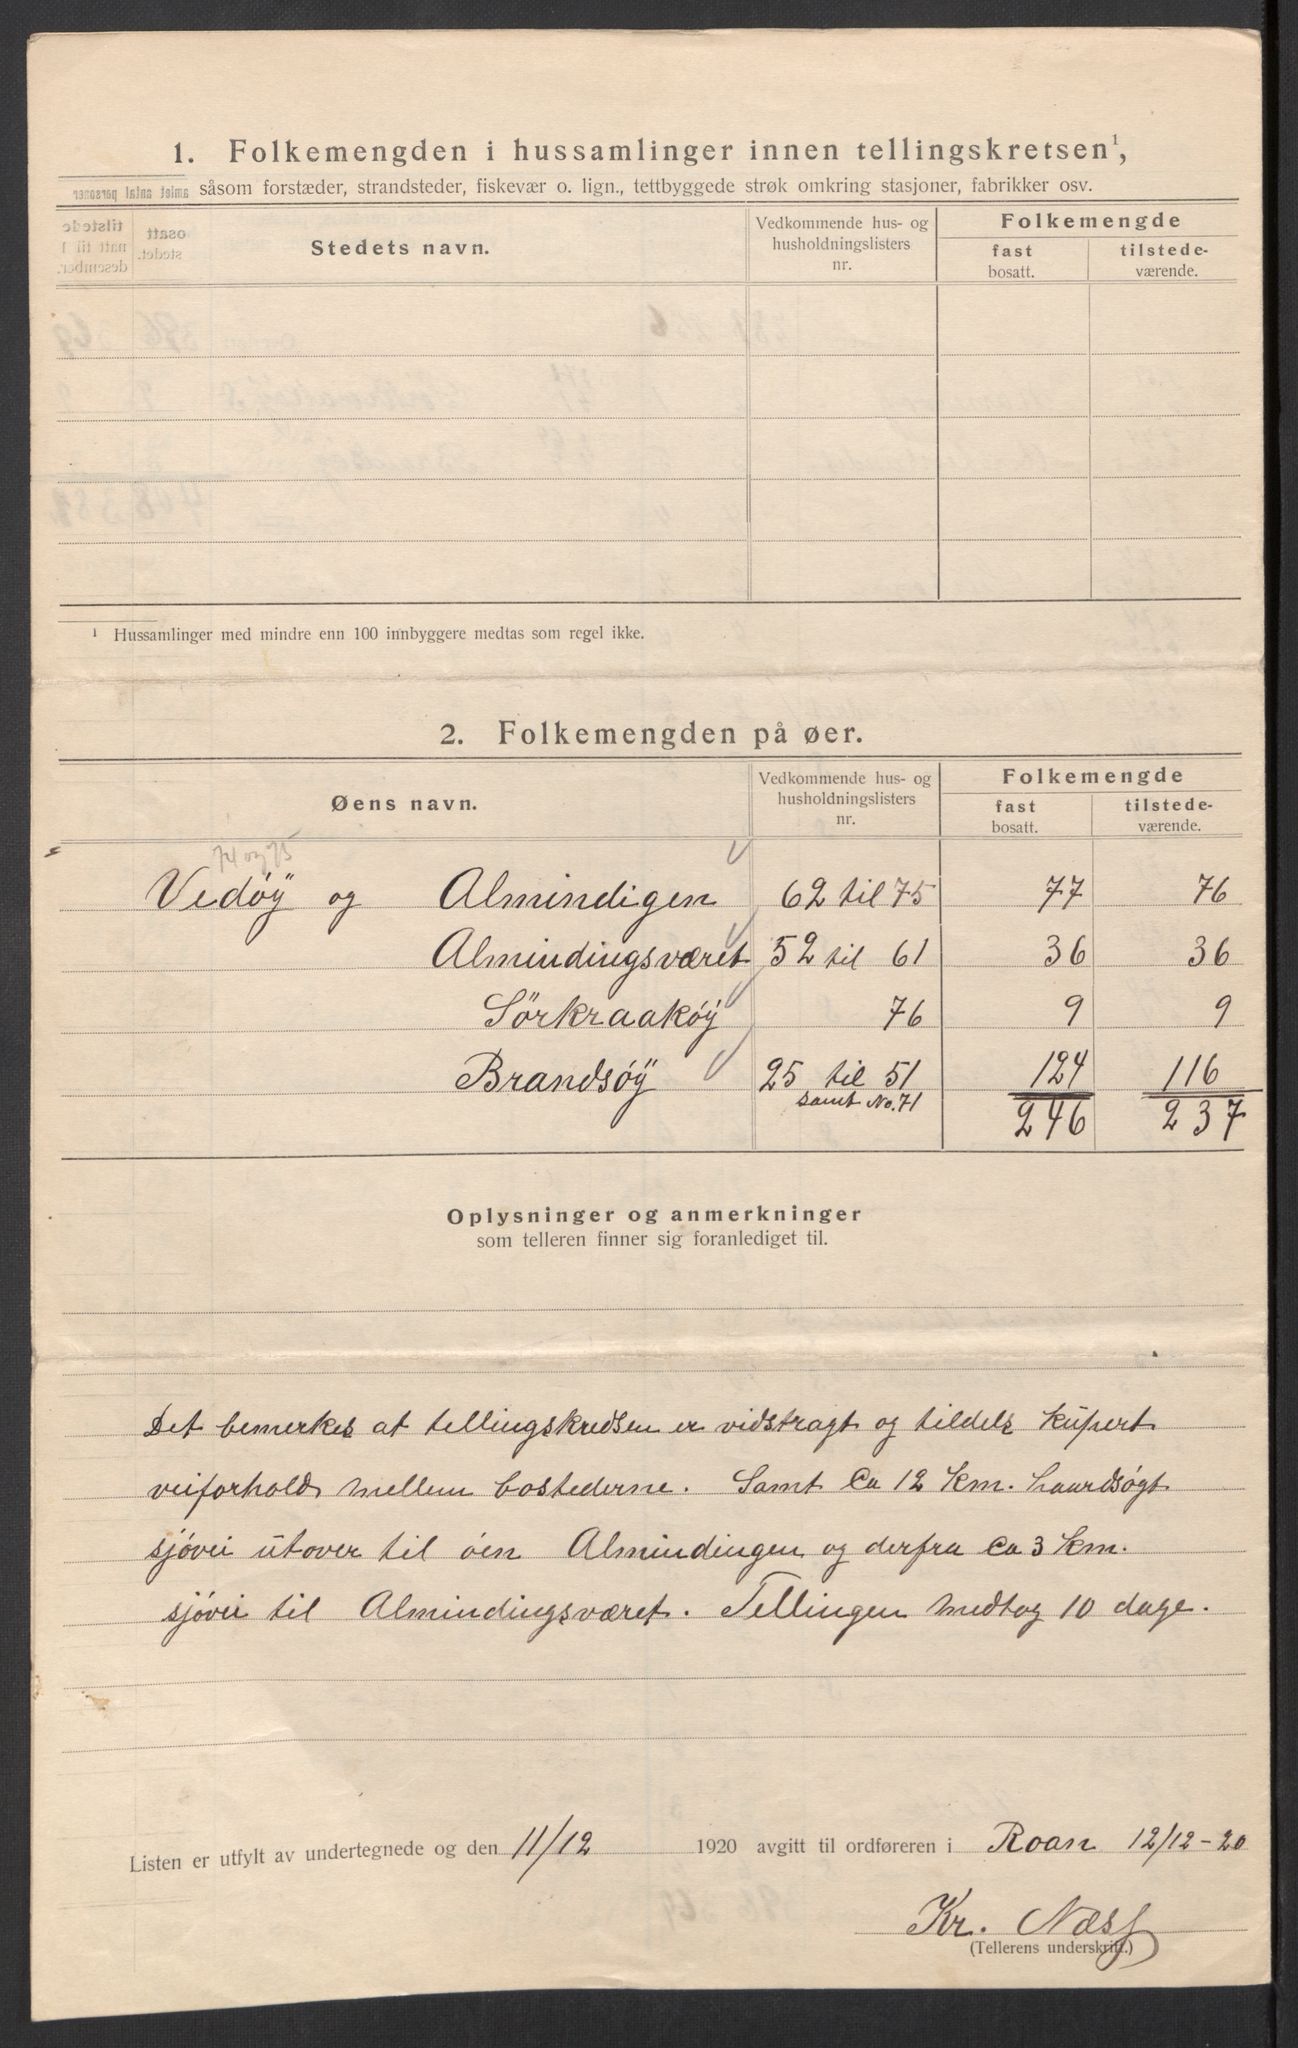 1. Folkemengden i hussamlinger innen tellingskretsen¹,
såsom forstæder, strandsteder, fiskevær o. lign., tettbyggede strøk omkring stasjoner, fabrikker osv.
Stedets navn. Vedkommende hus- og husholdningslisters nr. Folkemengde
fast bosatt. tilstede-værende.
¹ Hussamlinger med mindre enn 100 innbyggere medtas som regel ikke.
2. Folkemengden på øer.
Øens navn. Vedkommende hus- og husholdningslisters nr. Folkemengde
fast bosatt. tilstede-værende.
74 og 75
Vedøÿ og Almindigen 62 til 75 77 76
Almindingsværet 52 til 61 36 36
Sörkraakøÿ 76 9 9
Brandsøÿ 25 til 51 124 116
samt No. 71 246 237
Oplysninger og anmerkninger
som telleren finner sig foranlediget til.
Det bemerkes at tellingskredsen er vidstragt og tildels kupert
veiforhold mellem bostederne. Samt Ca 12 km. haardsøgt
sjøvei utover til øen Almindingen og derfra Ca 3 km.
sjøvei til Almindingsværet. Tellingen medtog 10 dage.
Listen er utfylt av undertegnede og den 11/12 1920 avgitt til ordføreren i Roan 12/12-20
Kr. Næss
(Tellerens underskrift.)